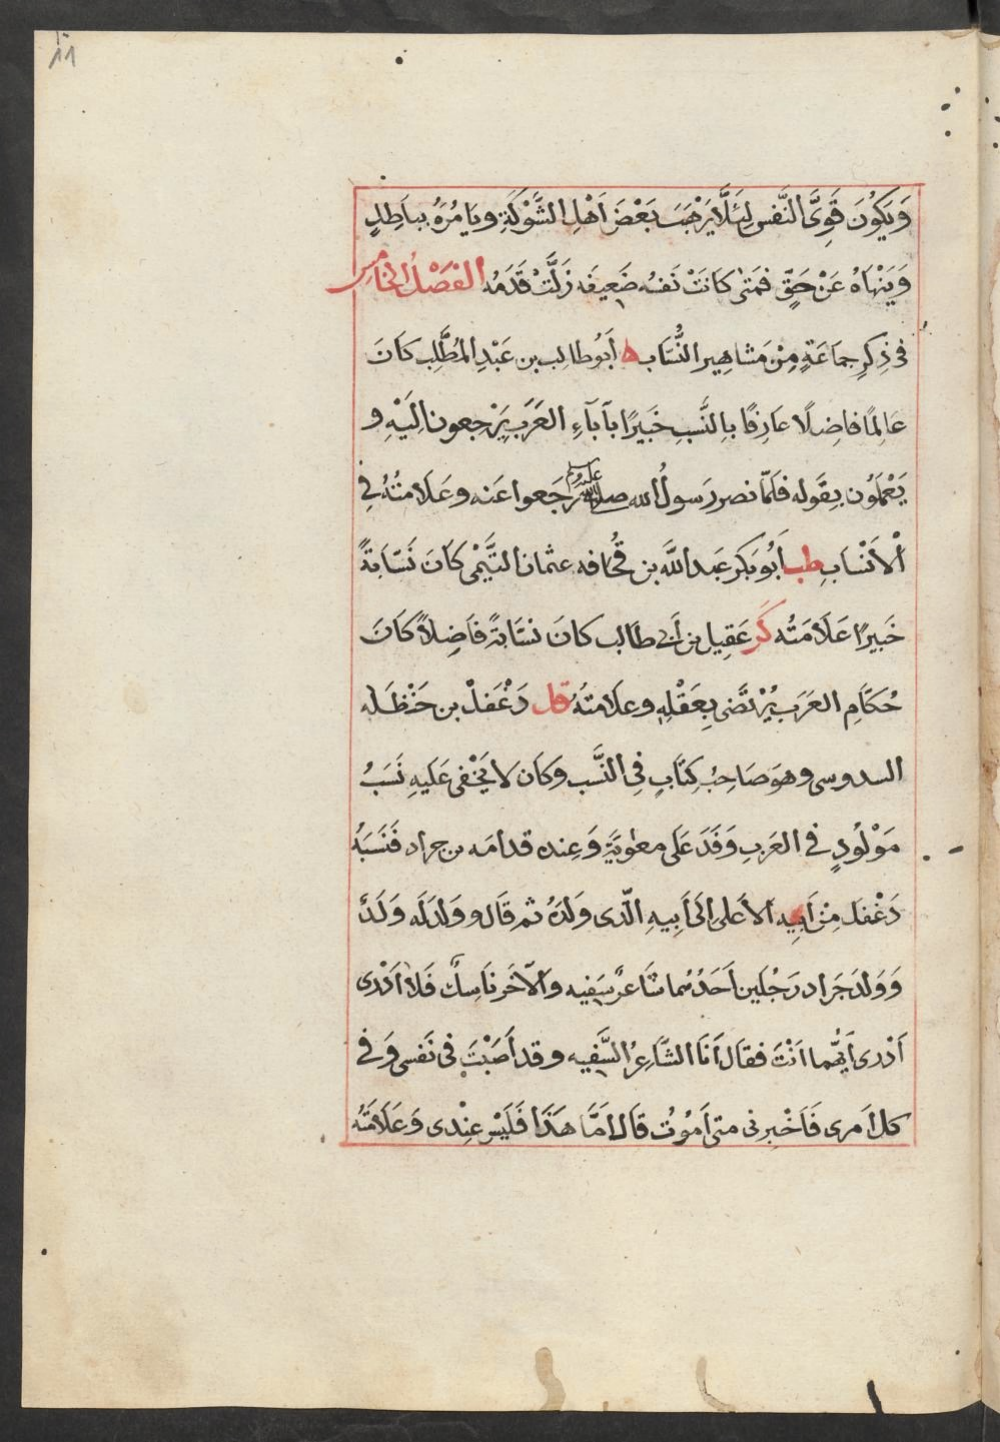 ١١
وَيَكُونَ قَوِىَّ النَّفسِ لِئَلَّا يَرْهَبَ بَعْضَ اَهْلِ الشَّوْكَةِ ويَامُرَهُ بباَطِلٍ
وَيَنْهَاهُ عَنْ حَقٍّ فمَتٰى كانَتْ نَفسُه ضَعِيفَه زَلَّتْ قَدَمُه الفَصْلُ الخامِس
فى ذِكرِ جمَاعَةٍ مِنْ مَشاهِير النُّسَّاب ه اَبُو طالِب بن عَبْدِ المُطَّلِب كانَ
عَالِمًا فاضِلًا عاَرِفًا باِلنَّسَبِ خَبَيرًا بآبَآءِ العَرَبِ يَرْجعون اِلَيْهِ و
يَعْمَلَوُن بِقَوله فلَمّا نصر رَسولُ الله صلى الله عليه وسلم رَجَعوا عَنه وعَلَامتُهُ فِي
اْلاَنْسَابِ طب اَبُو بَكر عَبد اللَّه بن قُحَافه عثمان التَّيْمى كَانَ نَسّابَةً
خَبيرًا عَلَامَتُه كَر عَقِيل بن اَبى طَالب كانَ نسَّابَةً فَاضِلاً كَانَ
حُكَّامِ العَرَبِ يُرْتَضَى بِعَقْلِهِ وعلاَمتهُ قل دَغْفَلْ بن حَنْظَلَه
السدوسى وهوَ صَاحِبُ كِتَابٍ فِى النَّسَب وكَان لاَ يَخْفى عَلَيهِ نَسَبُ
مَوْلُودٍ فى العَرَبِ وَفَدَ عَلَى معٰوِيَةَ وَعِنده قدامَه بن جراد فَنَسَبَهُ
دَغْفَل مِنْ اَبِيه الأَعلىٰ اِلَى اَبِيهِ الَّذى وَلدَهُ ثم قَال و وَلدَ لَه وَلَدً
وَوَلدَ جَرَاد رَجُلَين اَحَدُهُما شَاعرٌ سَفِيه والآخَر نَاسِكٌ فَلاَ اَدْرى
اَدْرى اَيُّهُما اَنْتَ فقال اَنَا الشَّاعِرُ السَّفِيه وقد اَصَبْتَ فى نَفسى وَفى
كل اَمرى فَاَخْبِرنى متى اَمُوْتُ قَال اَمَّا هَذَا فَلَيْسَ عِنْدى وَعَلاَمَتُهُ